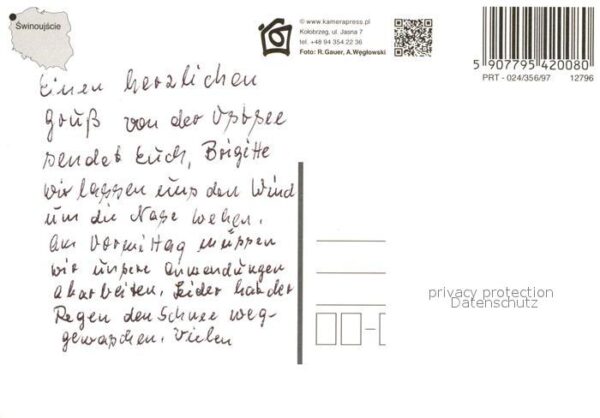 Świnoujście
© www.kamerapress.pl
Kołobrzeg, ul. Jasna 7
tel. +48 94 354 22 36
Foto: R.Gauer, A.Węgłowski
5 907795 420080
PRT - 024/356/97 12796
Einen herzlichen
Gruß von der Ostsee
sendet Euch, Brigitte
wir lassen uns den Wind
um die Nase wehen.
Am Vormittag müssen
wir unsere Anwendungen
abarbeiten. Leider hat der
Regen den Schnee weg-
gewaschen. Vielen
privacy protection
Datenschutz